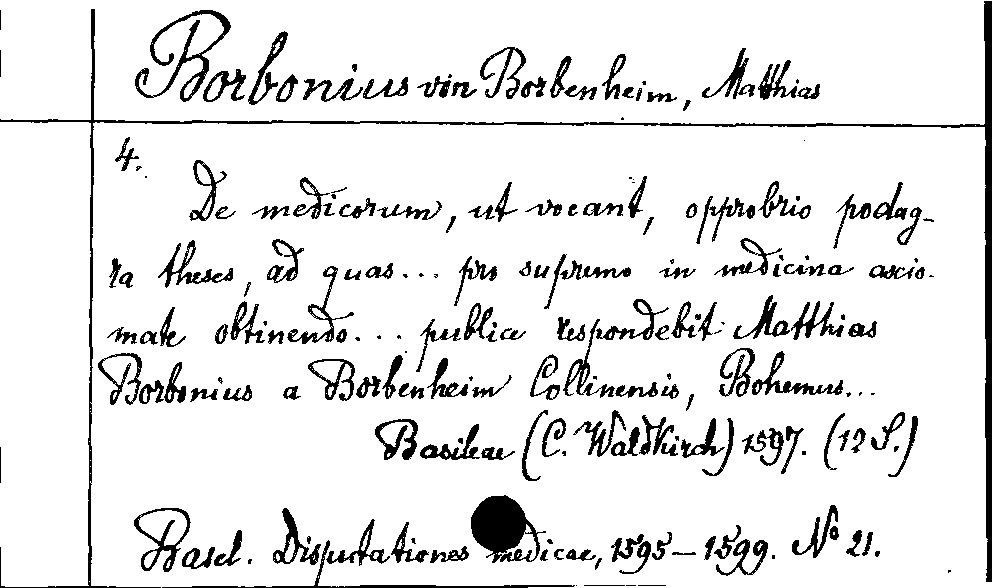 Borbonius von Borbenheim, Matthias
4.
De medicorum, ut vocant, opprobrio podag-
ra theses, ad quas... pro supremo in medicina axio-
mate obtinendo... publice respondebit Matthias
Borbonius a Borbenheim Collinensis, Bohemus...
Basileae (C. Waldkirch) 1597. (12 S.)
Basel. Disputationes medicae, 1595-1599. No 21.